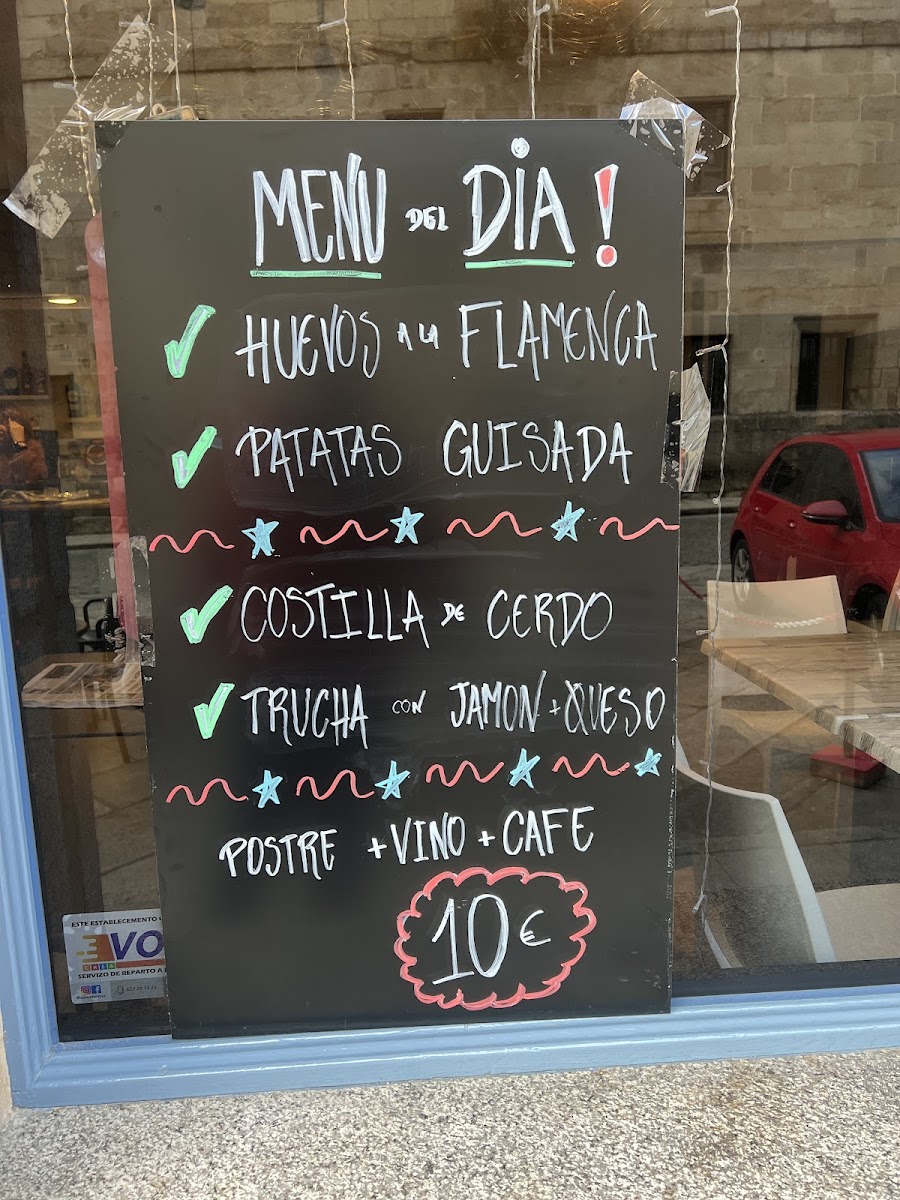 MENÚ DEL DÍA!
HUEVOS A LA FLAMENCA
PATATAS GUISADA
COSTILLA DE CERDO
TRUCHA CON JAMON + QUESO
POSTRE + VINO + CAFE
10€
ESTE ESTABLECEMENTO
SERVIZO DE REPARTO A